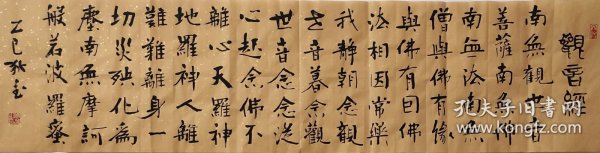 觀音經
南無觀世音
菩薩南無佛
南無法南無
僧與佛有緣
與佛有因佛
法相因常樂
我靜朝念觀
世音暮念觀
世音念念從
心起念佛不
離心天羅神
地羅神人離
難難離身一
切災殃化為
塵南無摩訶
般若波羅蜜
乙巳秋
孔夫子旧书网
www.kongfz.com